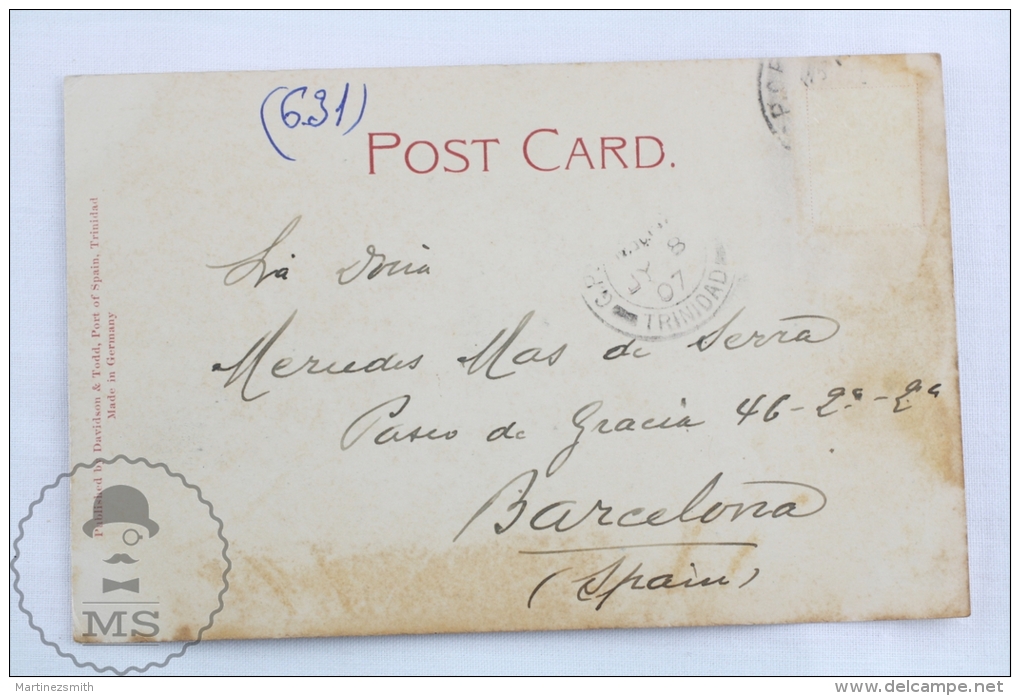 (631)
POST CARD.
Published by Davidson & Todd, Port of Spain, Trinidad
Made in Germany
G.P.
JY 8
07
TRINIDAD
Sra Doña
Mercedes Mas de Serra
Paseo de Gracia 46-2º-2ª
Barcelona
(Spain)
MS
Martinezsmith
www.delcampe.net